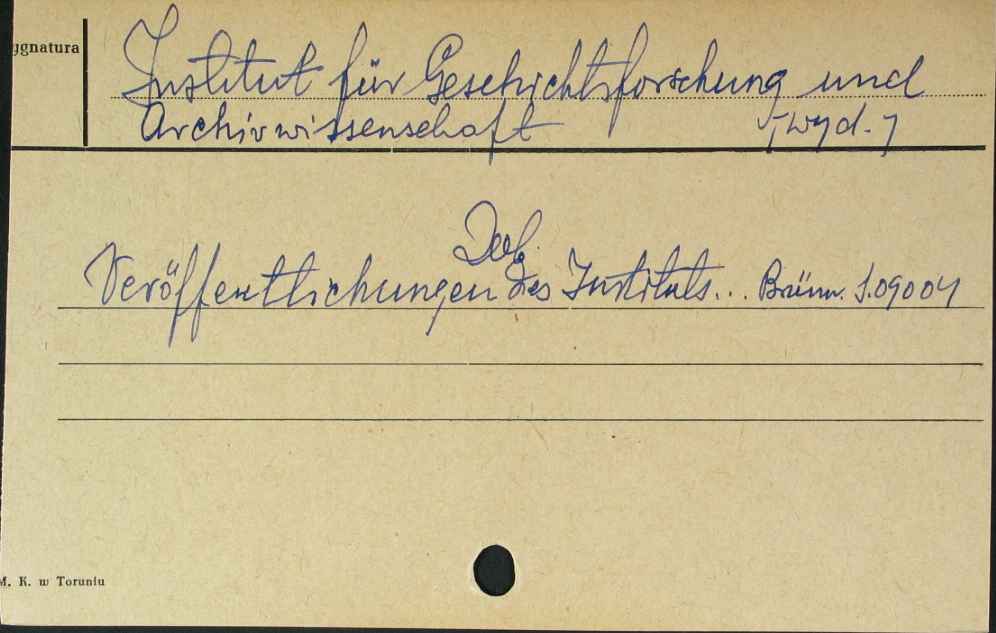 ygnatura
Institut für Geschichtsforschung und
Archivwissenschaft [wyd.]
Dub.
Veröffentlichungen des Instituts... Brünn. S.09004
M. K. w Toruniu